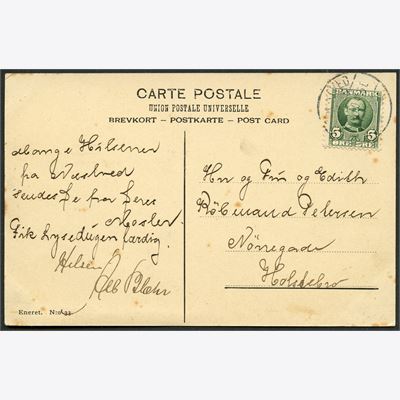 CARTE POSTALE
UNION POSTALE UNIVERSELLE
BREVKORT - POSTKARTE - POST CARD
DANMARK
5 5
ØRE ØRE
Mange Hilsener
fra Næstved
sendes De fra Deres
Moster
Fik Lysedugen færdig.
Hilsen
Hr og Fru og Edith
Købmand Petersen
Nørregade
Holstebro
Eneret.